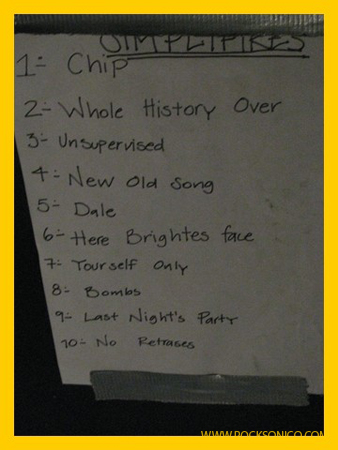 SIMPLIFIRES
1- Chip
2- Whole History Over
3- Unsupervised
4- New Old Song
5- Dale
6- Here Brightes face
7- Yourself Only
8- Bombs
9- Last Night's Party
10- No Retrases
WWW.ROCKSONICO.COM